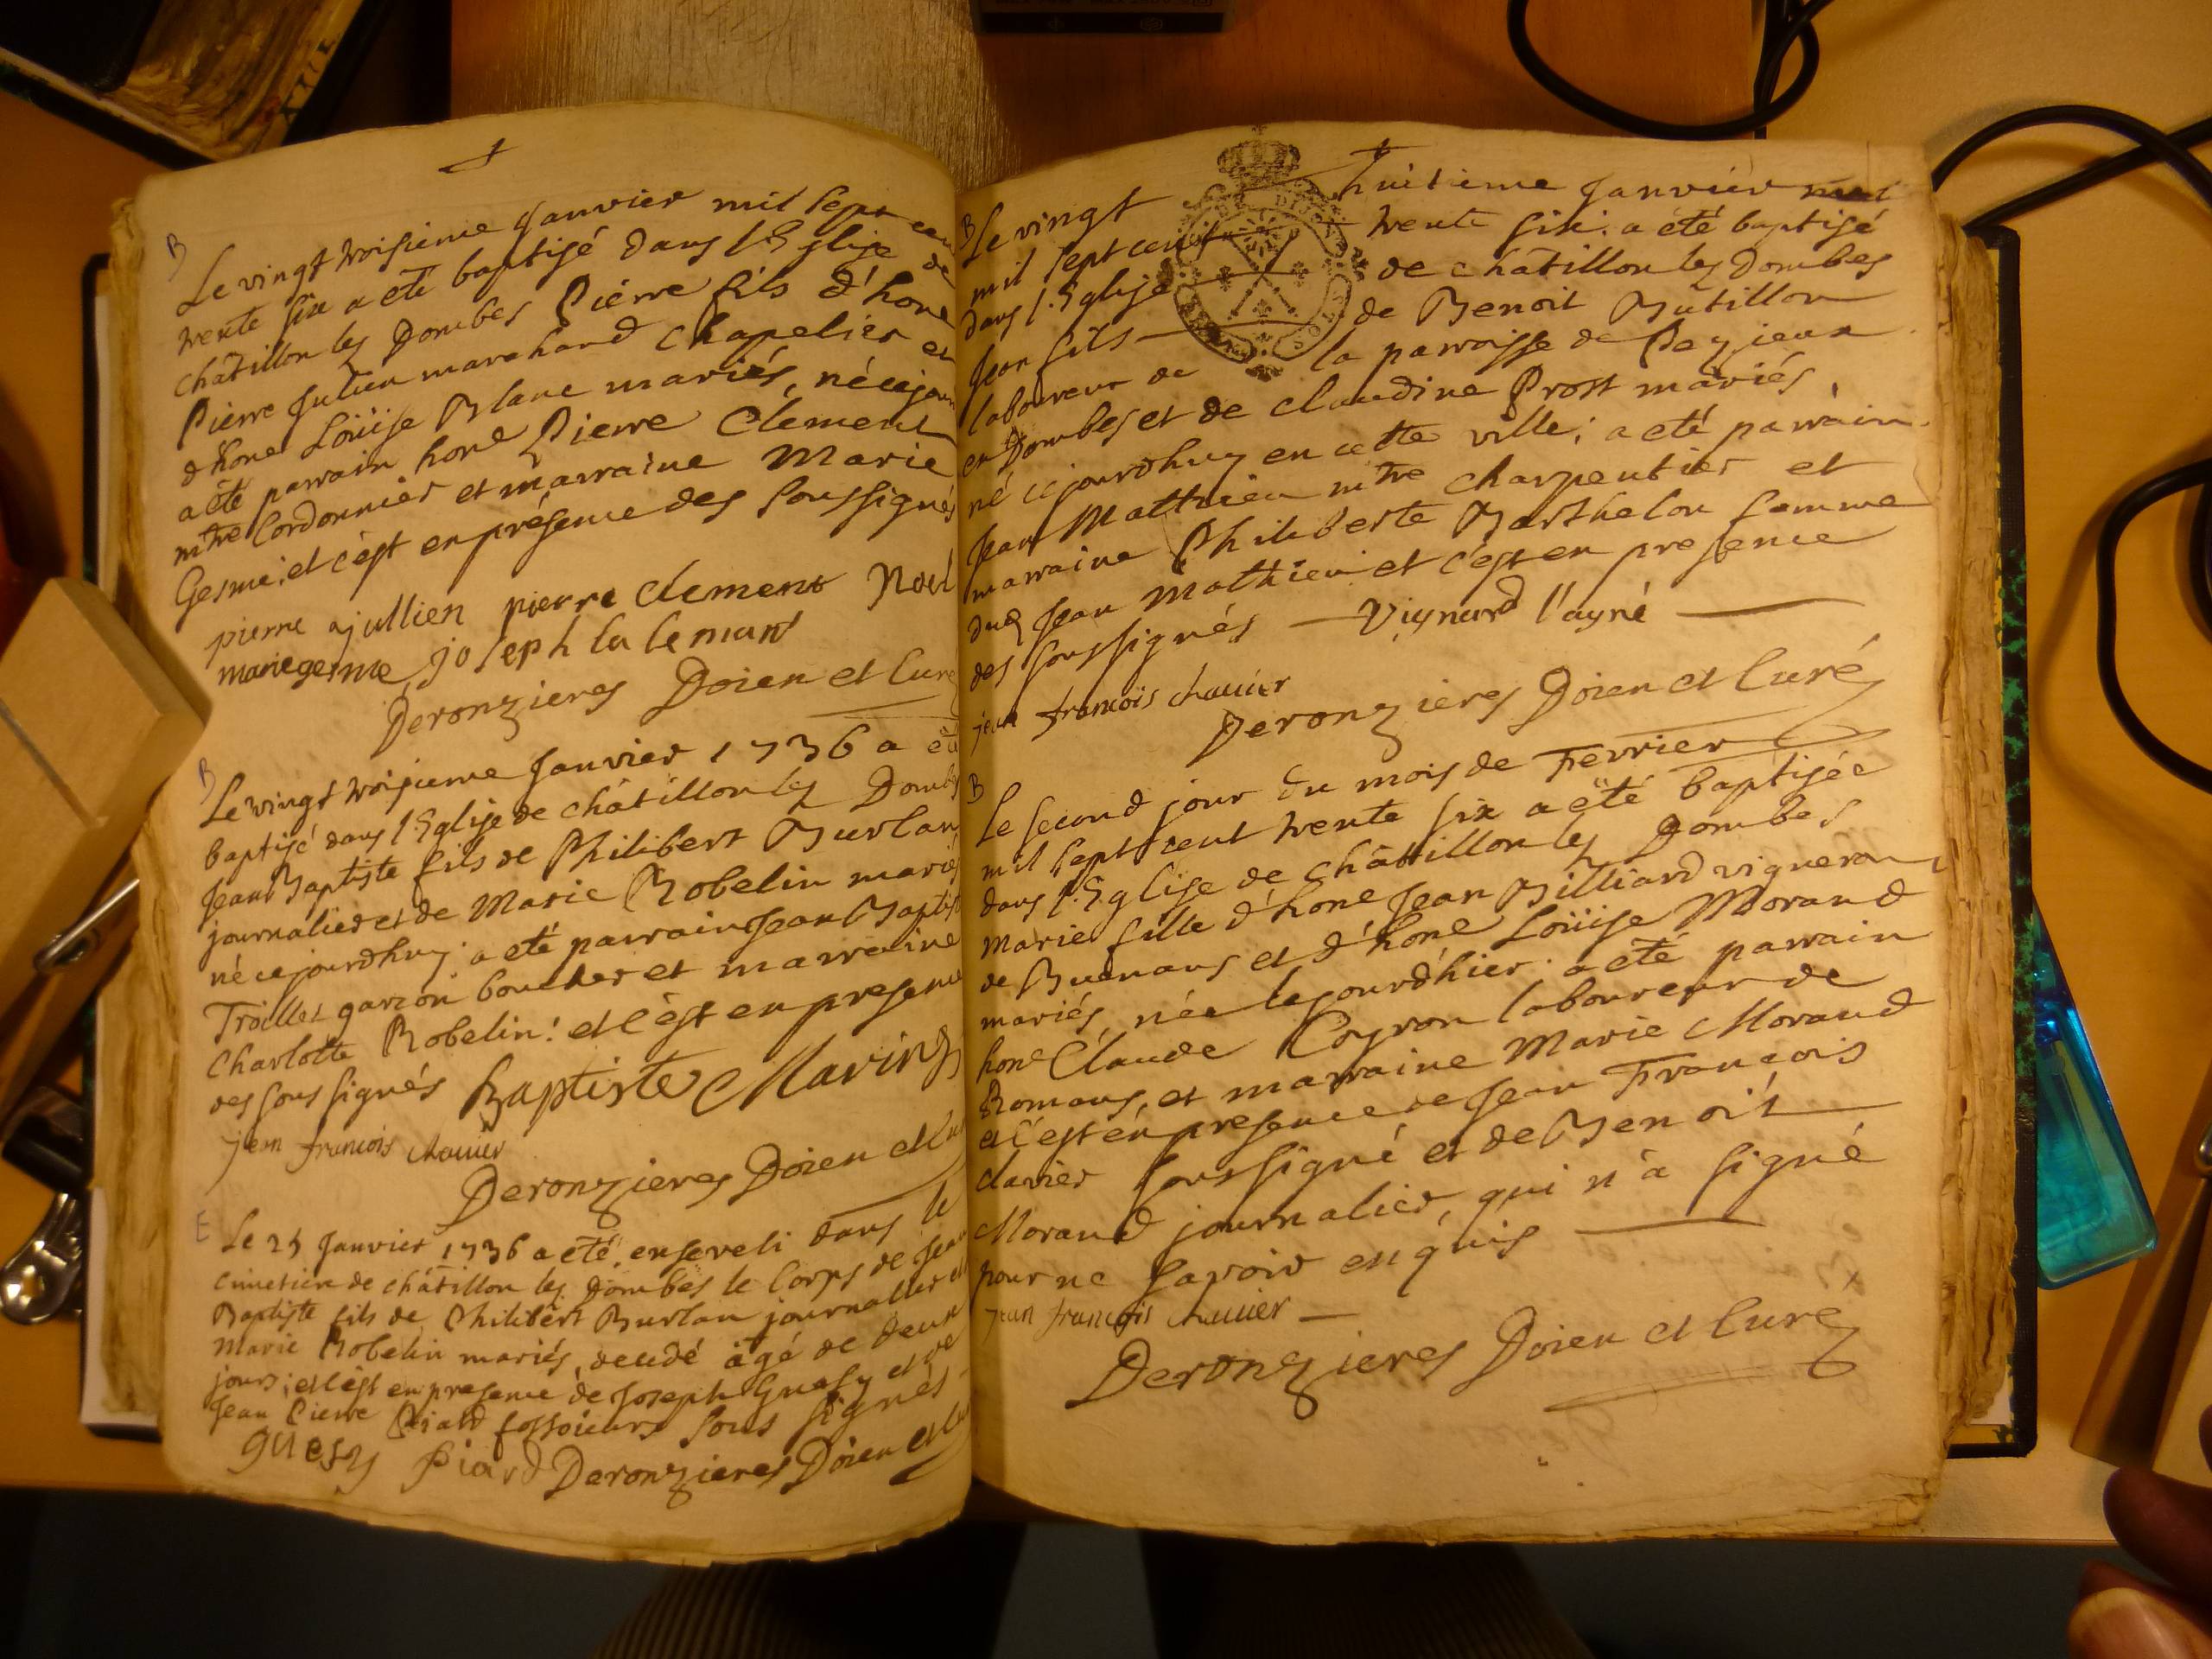 B
Le vingt troisieme Janvier mil sept cen
trente six a eté baptisé dans l'Eglise de
châtillon les Dombes Pierre fils d'hone
Pierre Jullien marchand chapelier et
d'hone Loüise Blanc mariés, né ce jour
a eté parrain hone Pierre Clement
mtre Cordonnier et marraine Marie
Gesme; et c'est en présence des soussignés
pierre jullien pierre clement Noel
marie gesme joseph la leman
Deronzieres Doien et Curé
B
Le vingt troisieme Janvier 1736 a eté
baptisé dans l'Eglise de châtillon les Dombes
Jean Baptiste fils de Philibert Burlan
journalier et de Marie Robelin mariés
né ce jourdhuy; a eté parrain Jean Baptiste
garçon boucher et marraine
Charlotte Robelin: et c'est en presence
des soussignés Baptiste Marin
jean francois clavier
Deronzieres Doien et Cu
E
Le 25 Janvier 1736 a eté enseveli dans le
cimetiere de châtillon les Dombes le Corps de Jean
Baptiste fils de Philibert Burlan journalier et
Marie Robelin mariés, decedé âgé de deux
jours; et c'est en presence de Joseph Guesy et de
Jean Pierre Piard fossoieurs sous signés
guesy Piard Deronzieres Doien et Cu
B
Le vingt huitieme Janvier
mil sept cent trente six a eté baptisé
dans l'Eglise de châtillon les Dombes
Jean fils de Benoit Butillon
laboureur de la parroisse de Peyzieux
en Dombes et de claudine Prost mariés,
né ce jourdhuy en cette ville; a eté parrain
Jean Mathieu mtre charpentier et
marraine Philiberte Barthelon femme
dud Jean Mathieu et c'est en presence
des soussignés — Vignard l'ayné —
jean francois clavier
Deronzieres Doien et Curé
B
Le second jour du mois de Fevrier
mil sept cent trente six a eté baptisée
dans l'Eglise de Châtillon les Dombes
Marie fille d'hone Jean Billiard vigneron
de Buenans et d'hone Loüise Morand
mariés, née le jourd'hier; a eté parrain
hone Claude Coyron laboureur de
Romans, et marraine Marie Morand
et c'est en presence de Jean François
clavier soussigné et de Benoit —
Morand journalier, qui n'a signé
pour ne savoir enquis —
jean francois clavier —
Deronzieres Doien et Curé